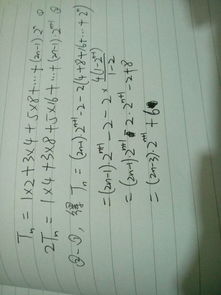 Tn = 1×2+3×4+5×8+…+(2n-1)·2ⁿ ①
2Tn = 1×4+3×8+5×16+…+(2n-1)·2ⁿ⁺¹ ②
②-①, 得 Tn = (2n-1)·2ⁿ⁺¹-2-2(4+8+16+…+2ⁿ)
= (2n-1)·2ⁿ⁺¹-2-2×4(1-2ⁿ⁻¹)/1-2
= (2n-1)·2ⁿ⁺¹-2-2ⁿ⁺²+8
= (2n-3)·2ⁿ⁺¹+6